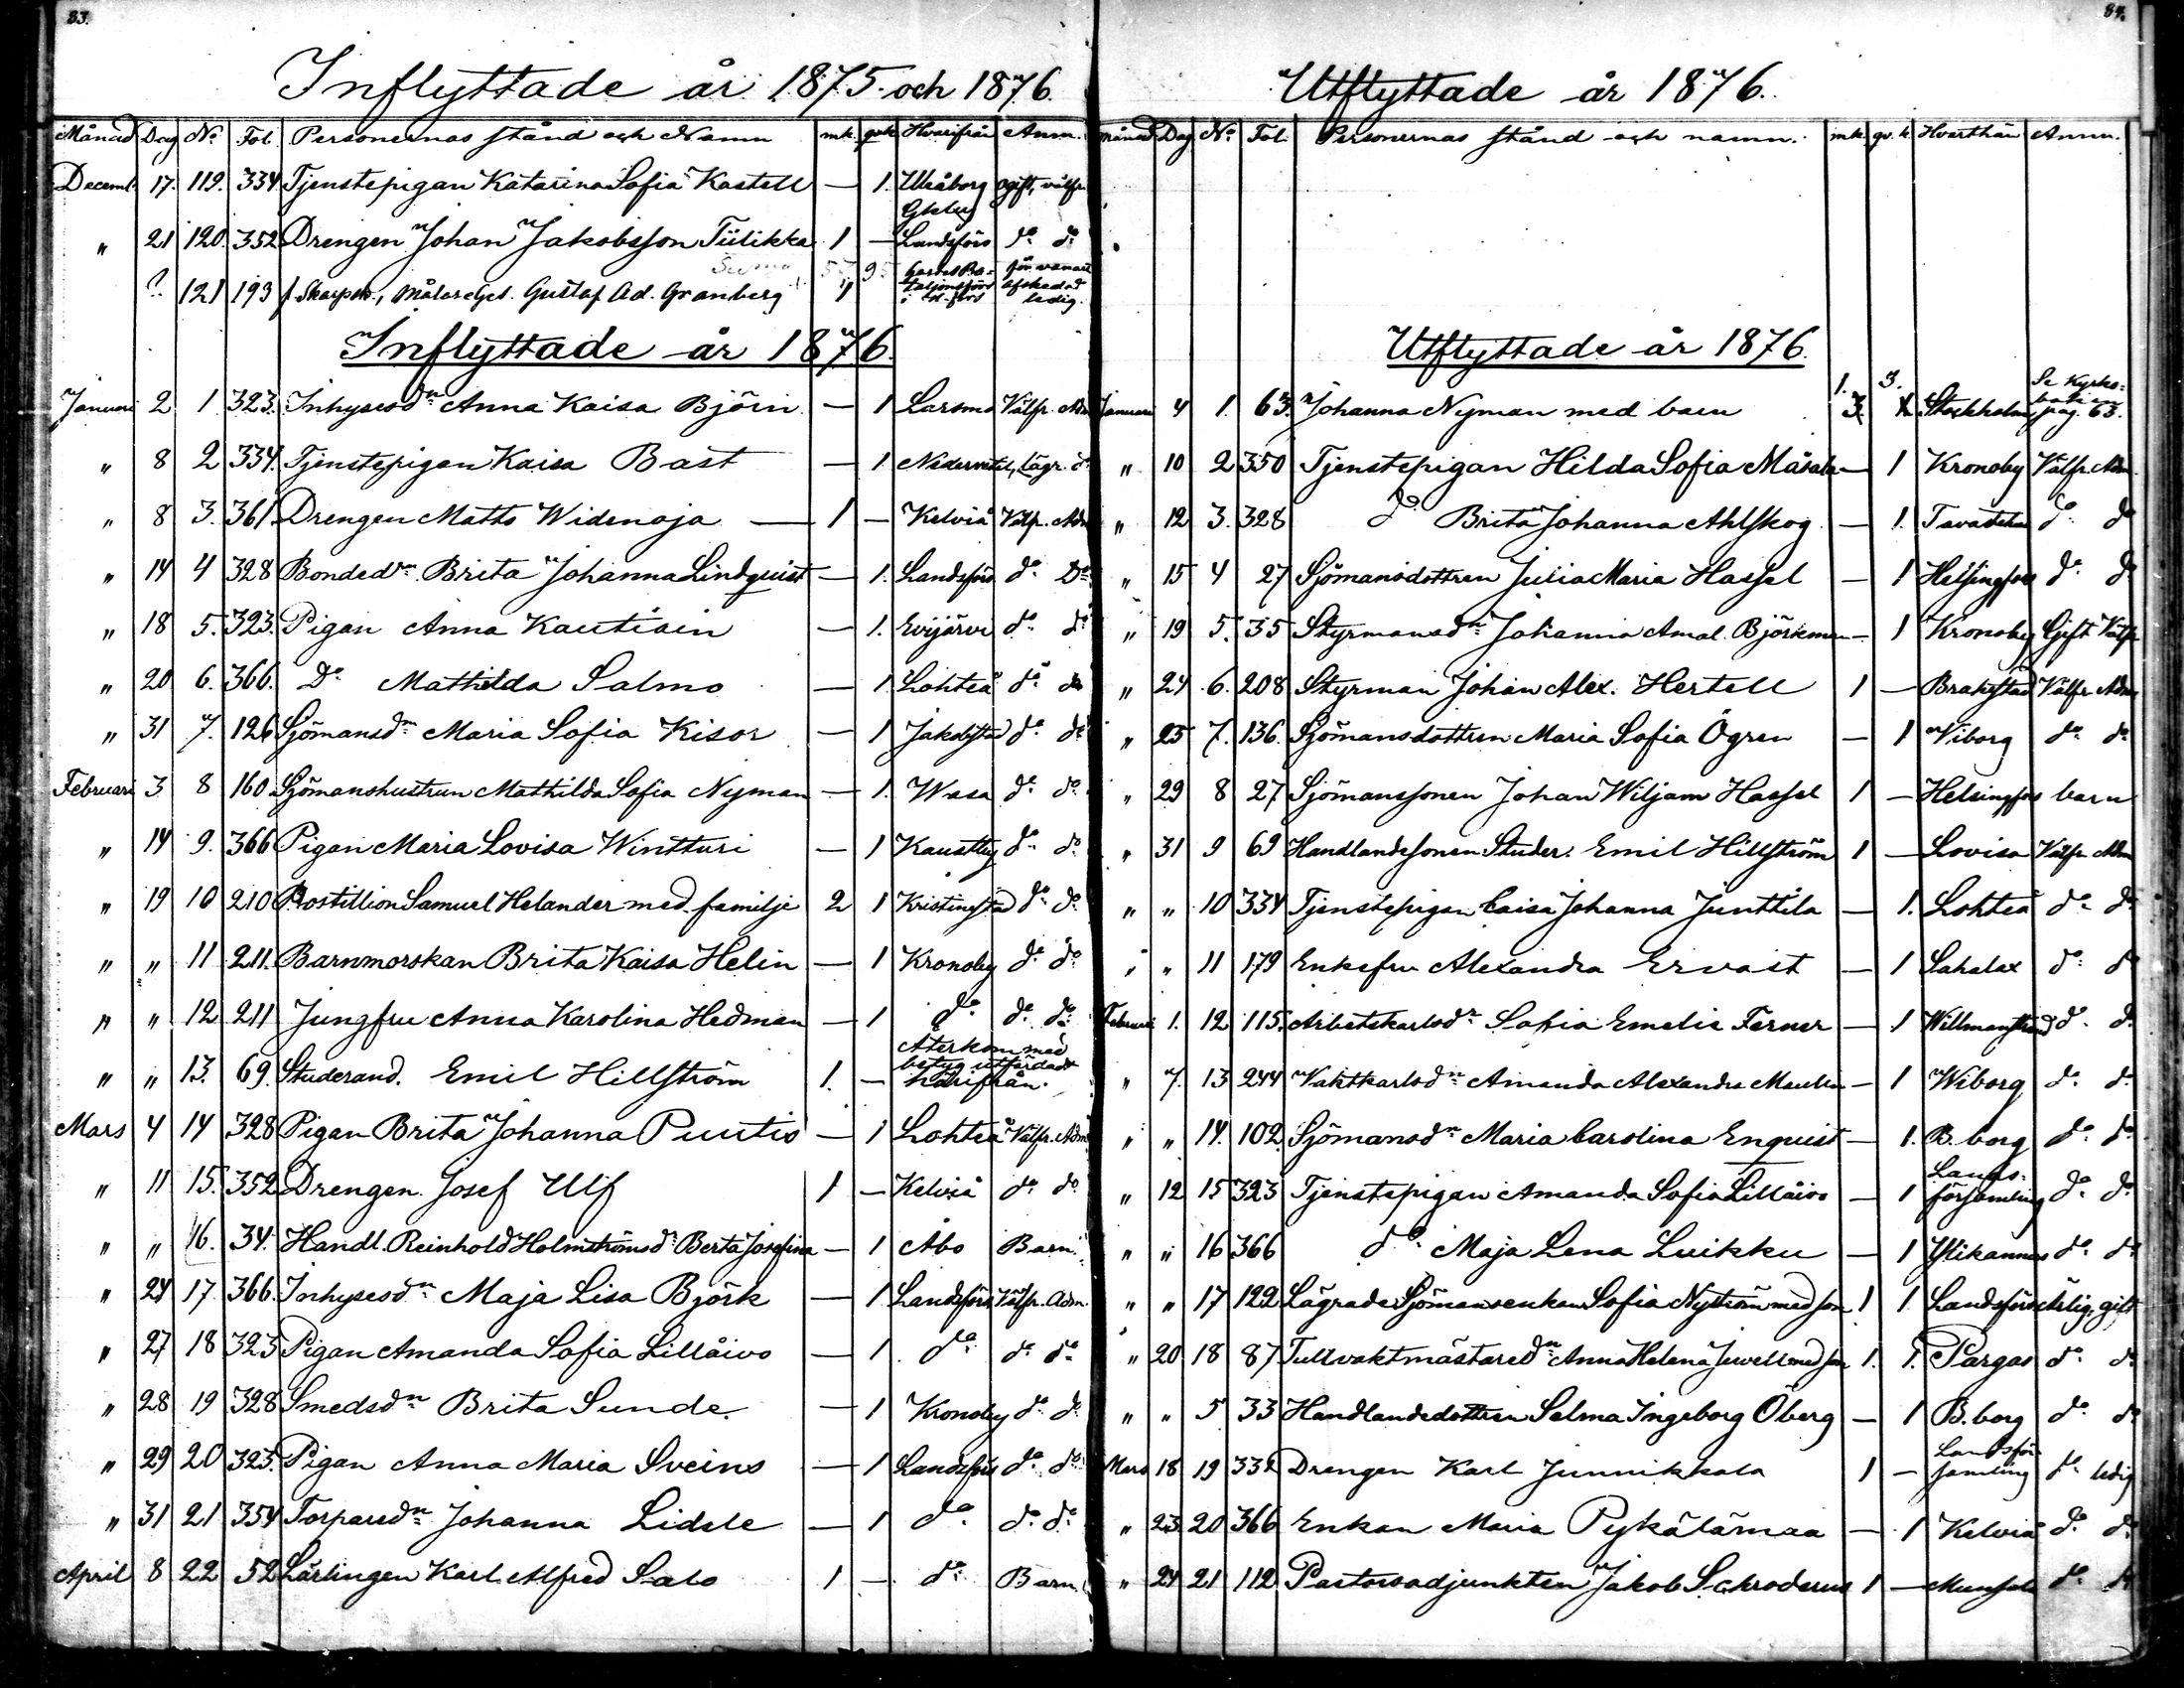 83.
Inflyttade år 1875 och 1876.
Månad Dag No. Fol. Personernas stånd och Namn mk. qvk Hvarifrån Anm.
Decemb. 17. 119. 334 Tjenstepigan Katarina Sofia Kastell — 1. Uleåborg ogift, välfr.
Gkleby
" 21 120. 352 Drengen Johan Jakobsson Tülikka 1 — Landsförs do do
Suma 57 95
? 121 193 f. Skarpsk., Målareges. Gustaf Ad. Granberg 1 för vanart afskedad ledig.
Inflyttade år 1876.
Januari 2 1 323. Inhysesdn Anna Kaisa Björn — 1 Larsmo Välfr. Adm
" 8 2 334. Tjenstepigan Kaisa Bast — 1 Nedervetil, Lägr. do
" 8 3. 361 Drengen Matts Widenoja — 1 — Kelviå Välfr. Adm
" 14 4 328 Bondedn Brita Johanna Lindquist — 1. Landsförs do Do
" 18 5. 323. Pigan Anna Kautiain — 1. Evijärvi do do
" 20 6. 366. Do Mathilda Salmo — 1 Lohteå do do
" 31 7. 126 Sjömansdn Maria Sofia Kisor — 1 Jakobstad do do
Februari 3 8 160 Sjömanshustrun Mathilda Sofia Nyman — 1. Wasa do do
" 14 9. 366 Pigan Maria Lovisa Wintturi — 1 Kaustby do do
" 19 10 210 Postillion Samuel Helander med familje 2 1 Kristinestad do do
" " 11 211. Barnmorskan Brita Kaisa Helin — 1 Kronoby do do
" " 12 211 Jungfru Anna Karolina Hedman — 1 do do do
" " 13. 69. Studerand. Emil Hillström 1. — Återkom med betyg utfärdadt härifrån.
Mars 4 14 328 Pigan Brita Johanna Puutio — 1 Lohteå Välfr. Adm
" 11 15. 352 Drengen Josef Ulf 1 — Kelviå do do
" " 16. 34. Handl. Reinhold Holmströms dr Berta Josefina — 1 Åbo Barn.
" 24 17 366. Inhysesdn Maja Lisa Björk — 1 Landsförs. Välfr. Adm.
" 27 18 323 Pigan Amanda Sofia Lillåivo — 1. do do do
" 28 19 328 Smedsdn Brita Sunde. — 1 Kronoby do do
" 29 20 323. Pigan Anna Maria Sveins — 1 Landsförs do do
" 31 21 354 Torparedn Johanna Lidsle — 1 do do do
April 8 22 52 Lärlingen Karl Alfred Salo 1 — do Barn.
84.
Utflyttade år 1876.
Månad Dag No Fol. Personernas stånd och namn. mk. qv. k. Hvarthän Anm.
Utflyttade år 1876.
Januari 4 1. 63. Johanna Nyman med barn 1. 3. Stockholm Se kyrkoboken pag. 63.
" 10 2 350 Tjenstepigan Hilda Sofia Måsala — 1 Kronoby Välfr. Adm.
" 12 3. 328 do Brita Johanna Ahlskog — 1. Tavastehus do do
" 15 4 27 Sjömansdottren Julia Maria Hassel — 1 Helsingfors do do
" 19 5. 35 Styrmansdn Johanna Amal. Björkman — 1 Kronoby Gift Välfr
" 24 6. 208 Styrman Johan Alex. Hertell 1 — Brahestad Välfr Adm
" 25 7. 136. Sjömansdottren Maria Sofia Ögren — 1 Viborg do do
" 29 8 27 Sjömanssonen Johan Wiljam Hassel 1 — Helsingfors barn
" 31 9 69 Handlandessonen Studer. Emil Hillström 1 — Lovisa Välfr Adm
" " 10 334 Tjenstepigan Caisa Johanna Junttila — 1. Lohteå do do
" " 11 179 Enkefru Alexandra Ervast — 1 Sahalax do do
Februari 1. 12 115. Arbetskarlsdn Sofia Emelie Ferner — 1 Willmanstrand do do
" 7. 13 244 Vaktkarlsdn Amanda Alexandra — 1 Wiborg do do
" " 14. 102 Sjömansdn Maria Carolina Enquist — 1. B. borg do do
" 12 15 323 Tjenstepigan Amanda Sofia Lillåivo — 1 Landsförsamling do do
" " 16 366 do Maja Lena Luikku — 1 Ylikannus do do
" " 17 122 Lägrade Sjömansenkan Sofia Nyström med son 1 1 Landsförs ärlig, gift
" 20 18 87 Tullvaktmästaredn Anna Helena Juvell med son 1. 1. Pargas do do
" " 5 33 Handlandedottren Selma Ingeborg Öberg — 1 B. borg do do
Mars 18 19 332 Drengen Karl Junnikkala 1 — Landsförsamling do ledig
" 23 20 366 Enkan Maria Pykälämaa — 1 Kelviå do do
" 24 21 112 Pastorsadjunkten Jakob Schroderus 1 — Munsala do do